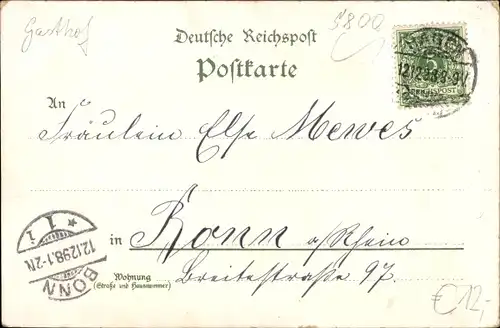 Gasthof
5800
Deutsche Reichspost
Postkarte
HAGEN
12 12 98 8-9V
REICHSPOST
An
Fräulein Else Mewes
in Bonn a/Rhein
Wohnung
(Straße und Hausnummer)
Breitestraße 97.
BONN
12.12.98.1-2N.
* 1 i
€12,-